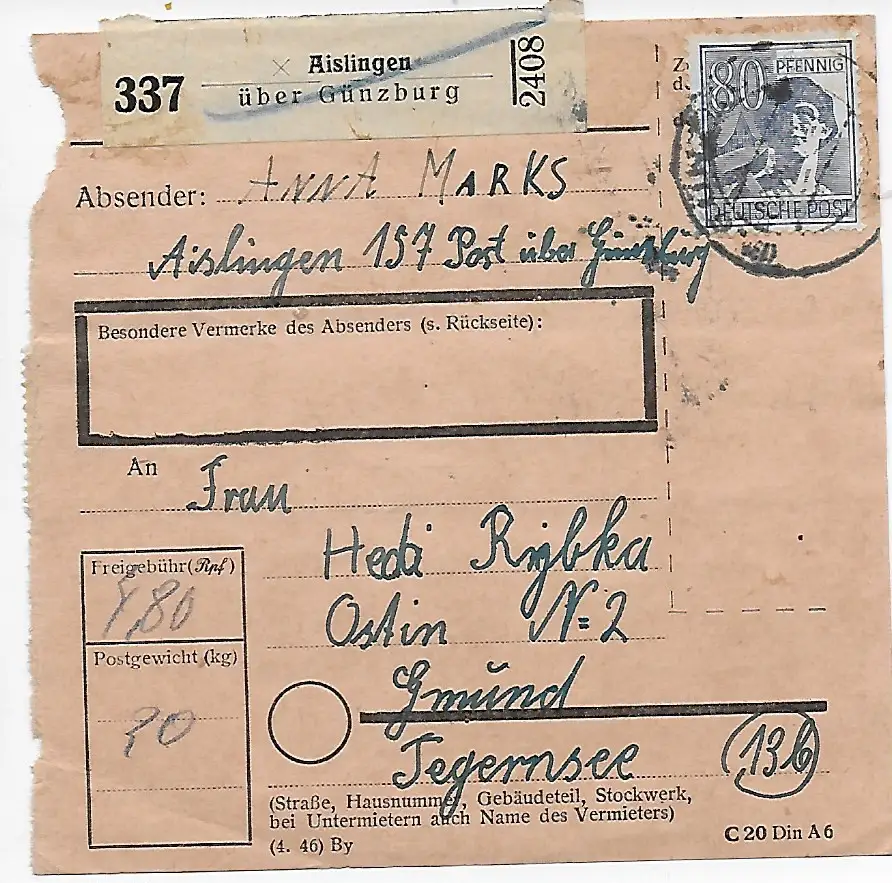 337
× Aislingen
über Günzburg
2408
80 PFENNIG
DEUTSCHE POST
Absender: ANNA MARKS
Aislingen 157 Post über Günzburg
Besondere Vermerke des Absenders (s. Rückseite):
An Frau
Hedi Rybka
Ostin N=2
Gmünd
Tegernsee
13b
Freigebühr (Rpf)
Postgewicht (kg)
20
(Straße, Hausnummer, Gebäudeteil, Stockwerk,
bei Untermietern auch Name des Vermieters)
(4. 46) By
C 20 Din A 6